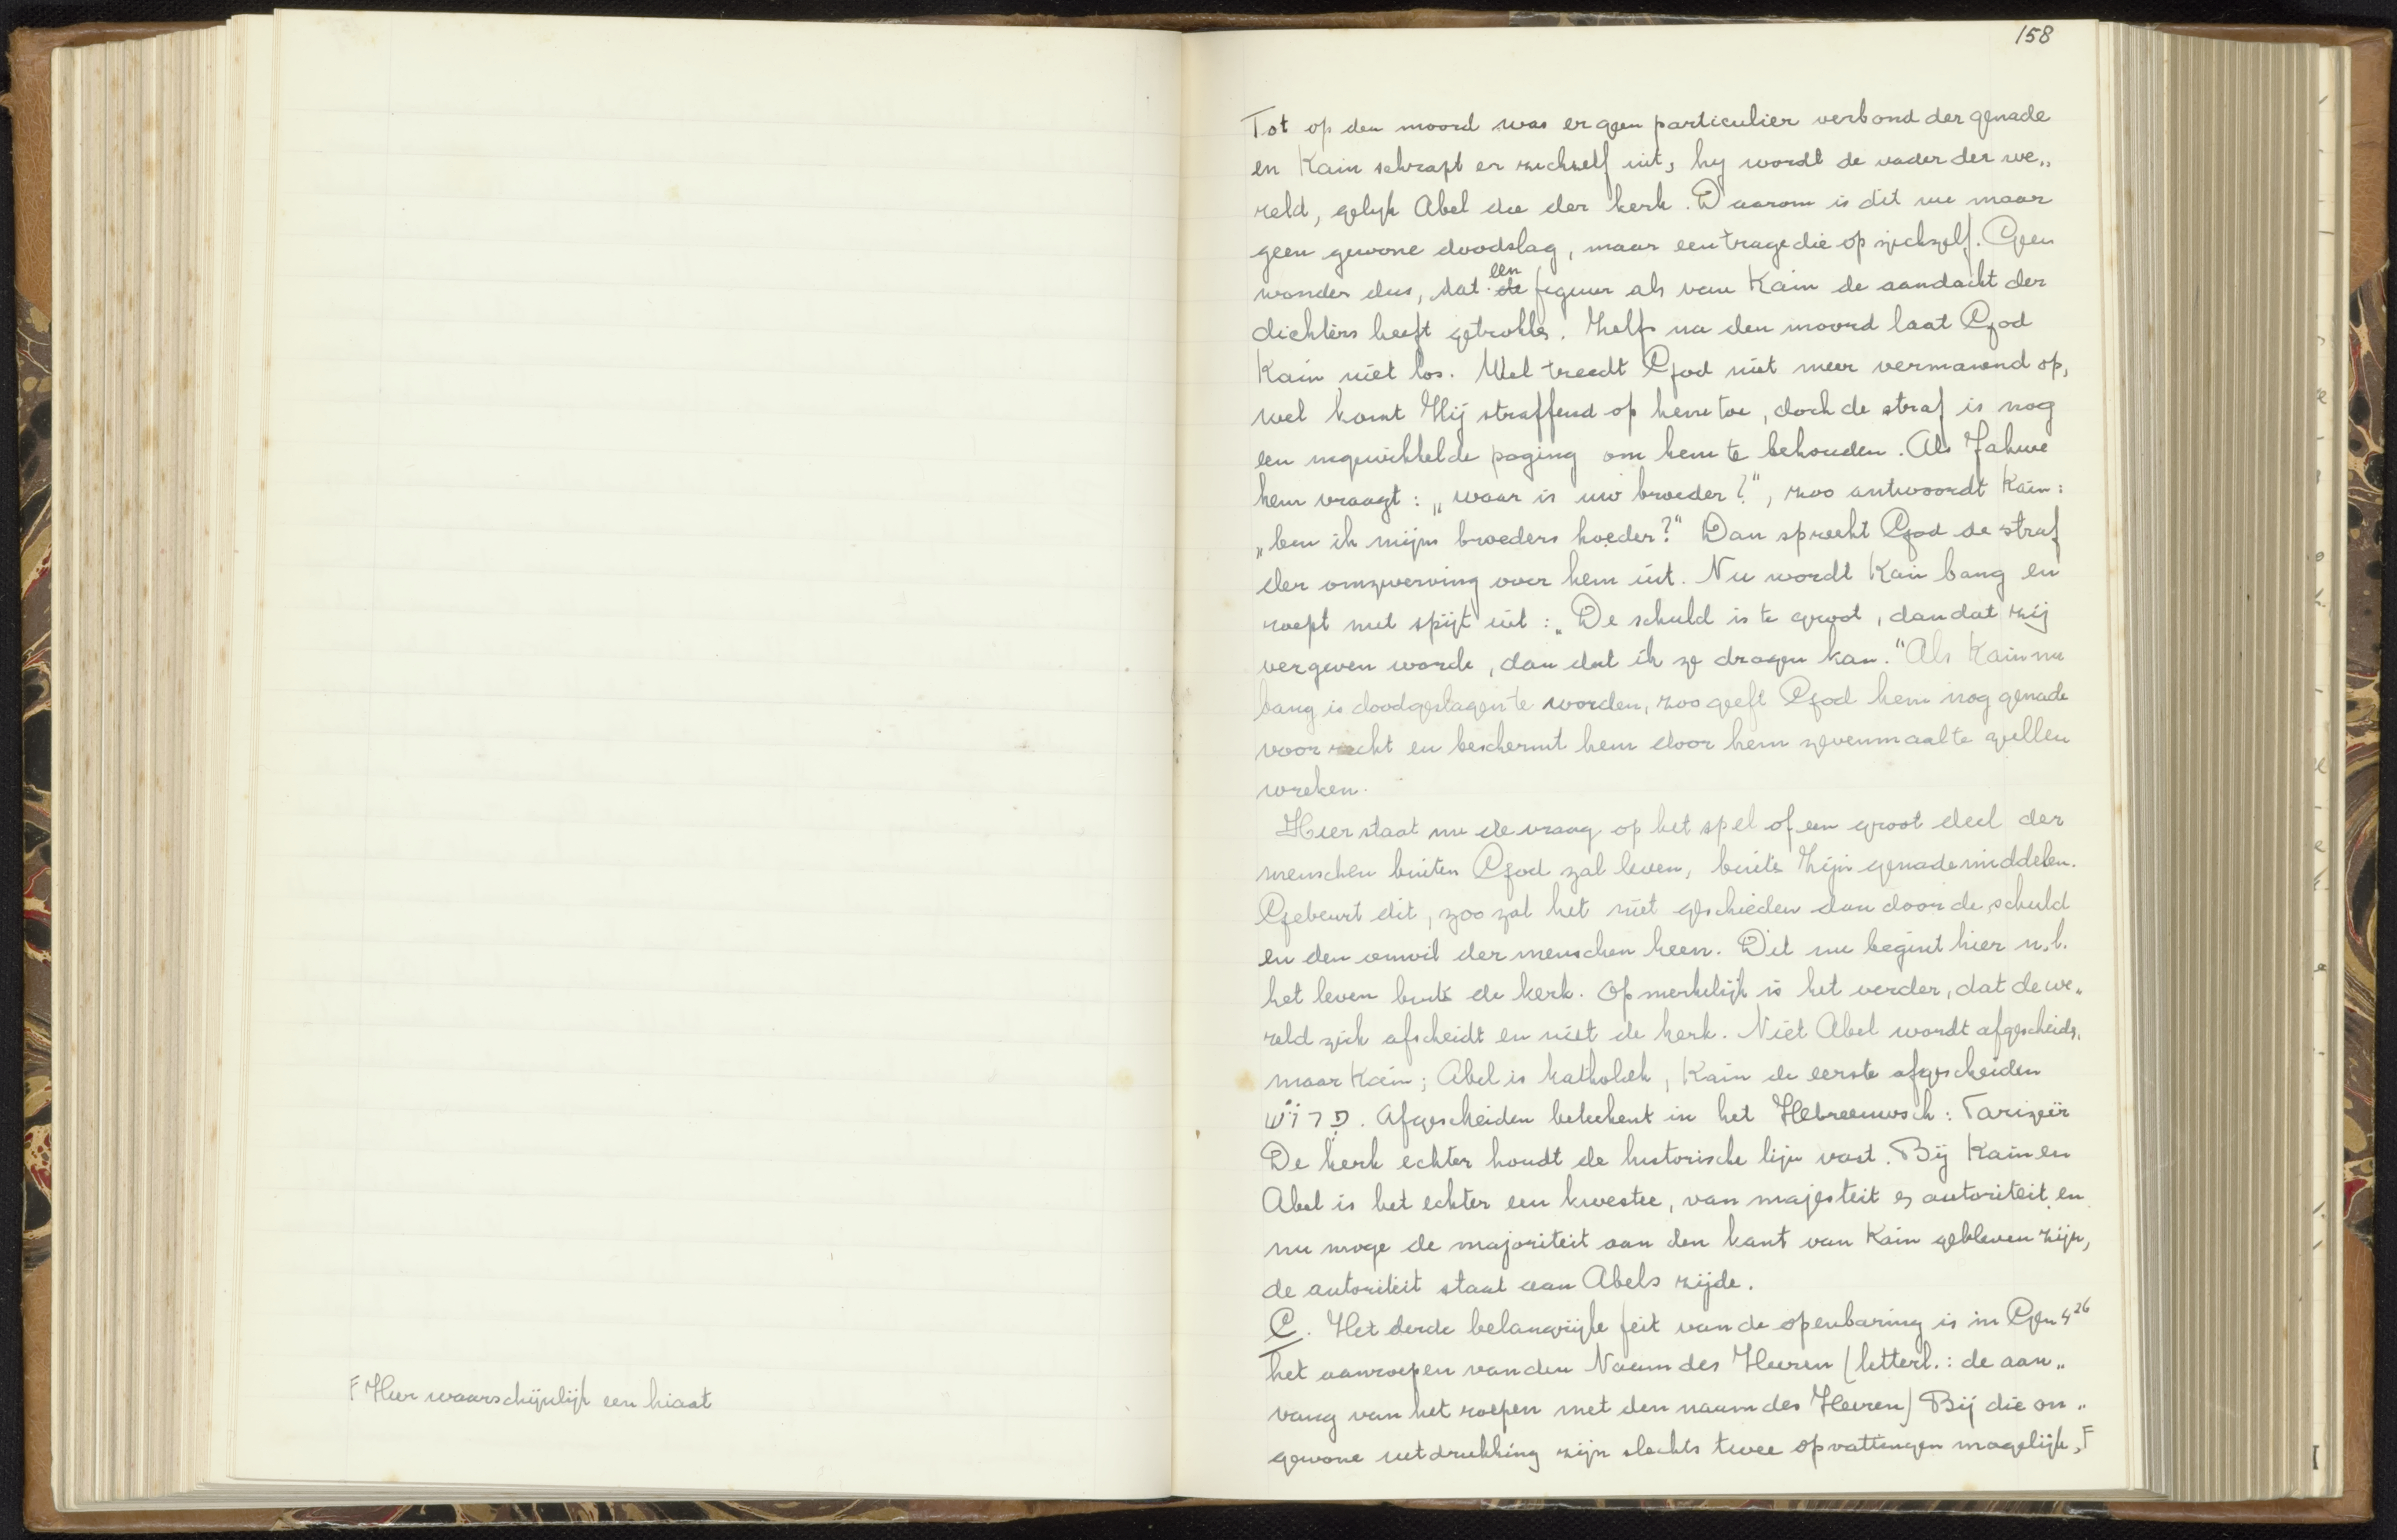 F Hier waarschijnlijk een hiaat
158
Tot op den moord was er geen particulier verbond der genade
en Kain schrapt er zichzelf uit, hy wordt de vader der we„
reld, gelyk Abel die der kerk. Daarom is dit nu maar
geen gewone doodslag, maar een tragedie op zichzelf. Geen
wonder dus, dat een figuur als van Kain de aandacht der
dichters heeft getrokken. Zelfs na den moord laat God
Kain niet los. Wel treedt God niet meer vermanend op,
wel komt Hij straffend op hem toe, doch de straf is nog
een ingewikkelde poging om hem te behouden. Als Jahwe
hem vraagt: „waar is uw broeder?“, zoo antwoordt Kain:
„ben ik mijns broeders hoeder?“ Dan spreekt God de straf
der omzwerving over hem uit. Nu wordt Kain bang en
roept met spijt uit: „De schuld is te groot, dan dat zij
vergeven worde, dan dat ik ze dragen kan.“ Als Kain nu
bang is doodgeslagen te worden, zoo geeft God hem nog genade
voor recht en beschermt hem door hem zevenmaal te zullen
wreken.
Hier staat nu de vraag op het spel of een groot deel der
menschen buiten God zal leven, buiten Zijn genademiddelen.
Gebeurt dit, zoo zal het niet geschieden dan door de schuld
en den onwil der menschen heen. Dit nu begint hier n.l.
het leven buiten de kerk. Opmerkelijk is het verder, dat de we„
reld zich afscheidt en niet de kerk. Niet Abel wordt afgescheiden,
maar Kain; Abel is katholiek, Kain de eerste afgescheiden
פרוש. Afgescheiden beteekent in het Hebreeuwsch: Farizeër
De kerk echter houdt de historische lijn vast. Bij Kain en
Abel is het echter een kwestie, van majesteit en autoriteit en
nu moge de majoriteit aan den kant van Kain gebleven zijn,
de autoriteit staat aan Abels zijde.
C. Het derde belangrijke feit van de openbaring is in Gen 4 26
het aanroepen van den Naam des Heeren (letterl.: de aan„
vang van het roepen met den naam des Heeren) Bij die on„
gewone uitdrukking zijn slechts twee opvattingen mogelijk, F